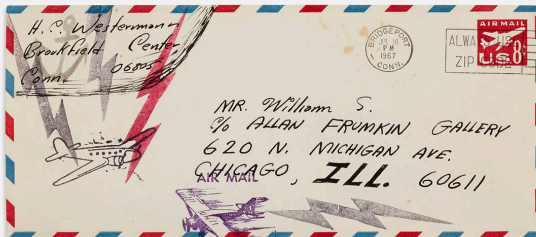 H. C. Westermann
Brookfield Center,
Conn. 06805
BRIDGEPORT
P M
1967
CONN.
ALWAYS USE
ZIP CODE
AIR MAIL
US 8¢
MR. William S.
C/o ALLAN FRUMKIN GALLERY
620 N. MICHIGAN AVE.
CHICAGO, ILL. 60611
AIR MAIL